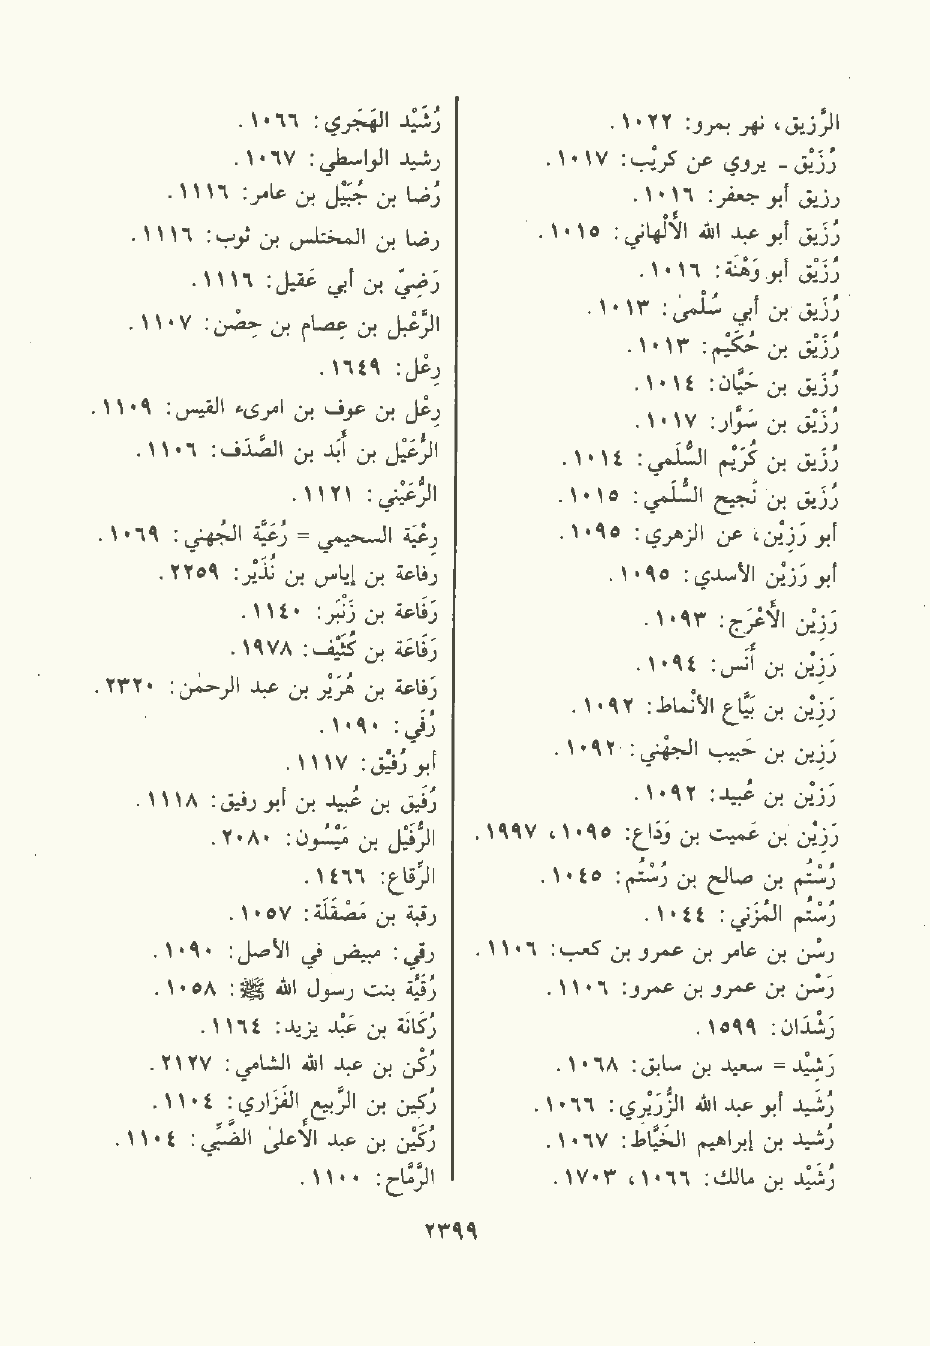 الرَّزيق، نهر بمرو: ١٠٢٢.
رُزَيْق ـ يروي عن كريْب: ١٠١٧.
رزيق أبو جعفر: ١٠١٦.
رُزَيق أبو عبد الله الأَلْهاني: ١٠١٥.
رُزَيْق أبو وَهْنَة: ١٠١٦.
رُزَيق بن أبي سُلْمىٰ: ١٠١٣.
رُزَيْق بن حُكَيْم: ١٠١٣.
رُزَيْق بن حَيَّان: ١٠١٤.
رُزَيْق بن سَوَّار: ١٠١٧.
رُزَيق بن كُرَيْم السُّلَمي: ١٠١٤.
رُزَيق بن نُجيح السُّلَمي: ١٠١٥.
أبو رَزِيْن، عن الزهري: ١٠٩٥.
أبو رَزيْن الأسدي: ١٠٩٥.
رَزِيْن الأَعْرَج: ١٠٩٣.
رَزِيْن بن أَنَس: ١٠٩٤.
رَزِيْن بن بَيَّاع الأنْماط: ١٠٩٢.
رَزِين بن حَبيب الجهْني: ١٠٩٢.
رَزيْن بن عُبيد: ١٠٩٢.
رَزِيْن بن عَميت بن وَدَاع: ١٠٩٥، ١٩٩٧.
رُسْتُم بن صالح بن رُسْتُم: ١٠٤٥.
رُسْتُم المُزَني: ١٠٤٤.
رسْن بن عامر بن عمرو بن كعب: ١١٠٦.
رَسْن بن عمرو بن عمرو: ١١٠٦.
رَشْدَان: ١٥٩٩.
رَشِيْد = سعيد بن سابق: ١٠٦٨.
رُشَيد أبو عبد الله الزُّرَيْري: ١٠٦٦.
رُشيد بن إبراهيم الخَيَّاط: ١٠٦٧.
رُشَيْد بن مالك: ١٠٦٦، ١٧٠٣.
رُشَيْد الهَجَري: ١٠٦٦.
رشيد الواسطي: ١٠٦٧.
رُضا بن جُبَيْل بن عامر: ١١١٦.
رضا بن المختلس بن ثوب: ١١١٦.
رَضِيّ بن أبي عَقيل: ١١١٦.
الرَّعْبل بن عِصام بن حِصْن: ١١٠٧.
رِعْل: ١٦٤٩.
رِعْل بن عوف بن امرىء القيس: ١١٠٩.
الرُّعَيْل بن أَبَد بن الصَّدَف: ١١٠٦.
الرُّعَيْني: ١١٢١.
رِعْيَة السحيمي = رُعَيَّة الجُهني: ١٠٦٩.
رفاعة بن إياس بن نُذَيْر: ٢٢٥٩.
رَفَاعة بن زَنْبَر: ١١٤٠.
رَفَاعَة بن كُثَيْف: ١٩٧٨.
رَفاعة بن هُرَيْر بن عبد الرحمٰن: ٢٣٢٠.
رُفَي: ١٠٩٠.
أبو رُفَيْق: ١١١٧.
رُفَيق بن عُبيد بن أبو رفيق: ١١١٨.
الرُّفَيْل بن مَيْسُون: ٢٠٨٠.
الرِّقاع: ١٤٦٦.
رقبة بن مَصْقَلَة: ١٠٥٧.
رقي: مبيض في الأصل: ١٠٩٠.
رُقَيَّة بنت رسول الله ﷺ: ١٠٥٨.
رُكَانَة بن عَبْد يزيد: ١١٦٤.
رُكْن بن عبد الله الشامي: ٢١٢٧.
رُكين بن الرَّبيع الفَزَاري: ١١٠٤.
رُكَيْن بن عبد الأَعلىٰ الضَّبِّي: ١١٠٤.
الرَّمَّاح: ١١٠٠.
٢٣٩٩